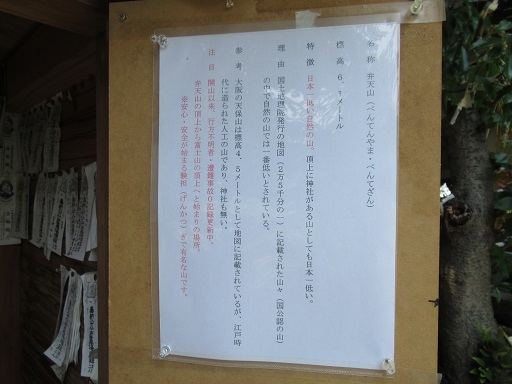 名 称 弁天山（べんてんやま・べんてざん）
標 高 6．1メートル
特 徴 日本一低い自然の山。頂上に神社がある山としても日本一低い。
理 由 国土地理院発行の地図（2万5千分の一）に記載された山々（国公認の山）
の中で自然の山では一番低いとされている。
参 考 大阪の天保山は標高4．5メートルとして地図に記載されているが、江戸時
代に造られた人工の山であり、神社も無い。
注 目 開山以来、行方不明者・遭難事故0記録更新中。
弁天山の頂上から富士山の頂上へと始まりの場所。
※安心・安全が始まる験担（げんかつ）ぎで有名な山です。